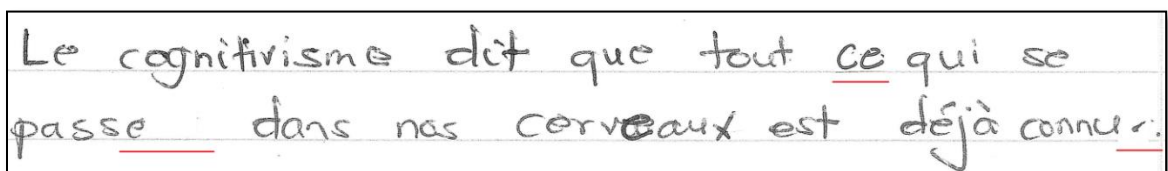 Le cognitivisme dit que tout ce qui se
passe dans nos cerveaux est déjà connu.